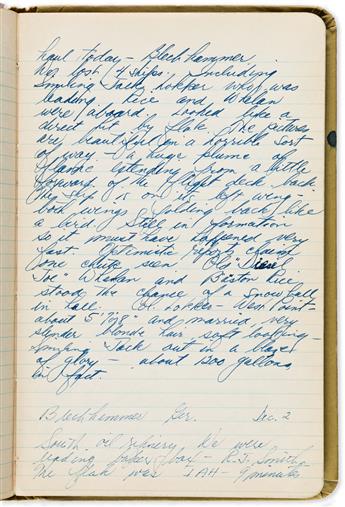 haul today - Blechhammer.
We lost 4 ships. Including
Smiling Jack Lokker who was
leading. Lice and Whelan
were aboard. Looked like a
direct hit by flak. The pictures
are beautiful in a horrible sort
of way - a huge plume of
flames extending from a little
forward of the flight deck back.
The ship is on its left wing -
both wings folding back like
a bird. Still in formation
so it must have happened very
fast. Optimistic report claims
one chute seen. Ole "Diesel
Joe" Whalen and Boston Lice
stood the chance of a snowball
in hell. Lokker - West Point -
about 5' and married, very
slender blonde hair, soft looking -
Smiling Jack out in a blaze
of glory - about 1200 gallons
in fact.
Blechhammer Ger. Dec. 2
South oil refinery We were
leading baker box - R.J. Smith -
The flak was I A H - 9 minutes